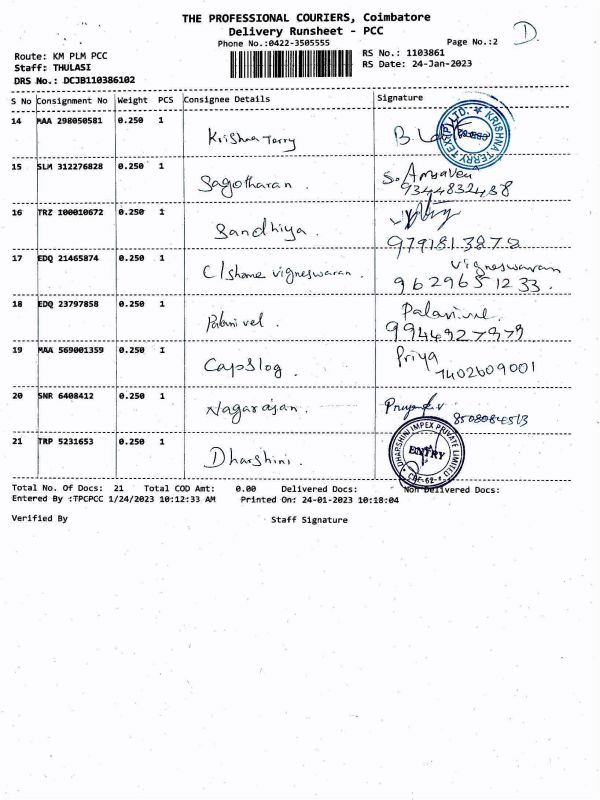 THE PROFESSIONAL COURIERS, Coimbatore
Delivery Runsheet - PCC
Phone No.:0422-3505555
Page No.:2
D.
Route: KM PLM PCC
RS No.: 1103861
Staff: THULASI
RS Date: 24-Jan-2023
DRS No.: DCJB110386102
S No Consignment No Weight PCS Consignee Details Signature
14 MAA 298050581 0.250 1 Krishna Terry B.
KRISHNA TERRY
15 SLM 312276828 0.250 1 Sagotharan.
9344832438
16 TRZ 100010672 0.250 1 Sandhiya.
9791813872
17 EDQ 21465874 0.250 1 vigneswaran. Vigneswaran
9629651233.
18 EDQ 23797858 0.250 1 Palanivel. Palanivel
9944927979
19 MAA 569001359 0.250 1 Capslog. Priya
7402609001
20 SNR 6408412 0.250 1 Nagarajan.
8508084513
21 TRP 5231653 0.250 1 Dharshini.
DHARSHINI IMPEX PRIVATE LIMITED
ENTRY
CBE-62
Total No. Of Docs: 21 Total COD Amt: 0.00 Delivered Docs: Non Delivered Docs:
Entered By :TPCPCC 1/24/2023 10:12:33 AM Printed On: 24-01-2023 10:18:04
Verified By Staff Signature